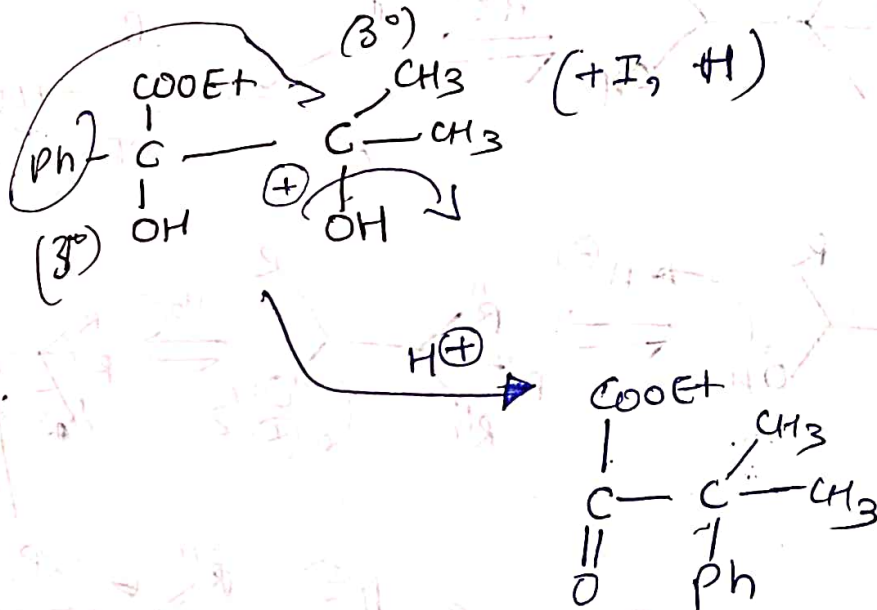 (3°)
COOEt CH3 (+I, H)
Ph - C — C — CH3
⊕
OH OH
(3°)
H⊕
COOEt
CH3
C — C — CH3
O Ph